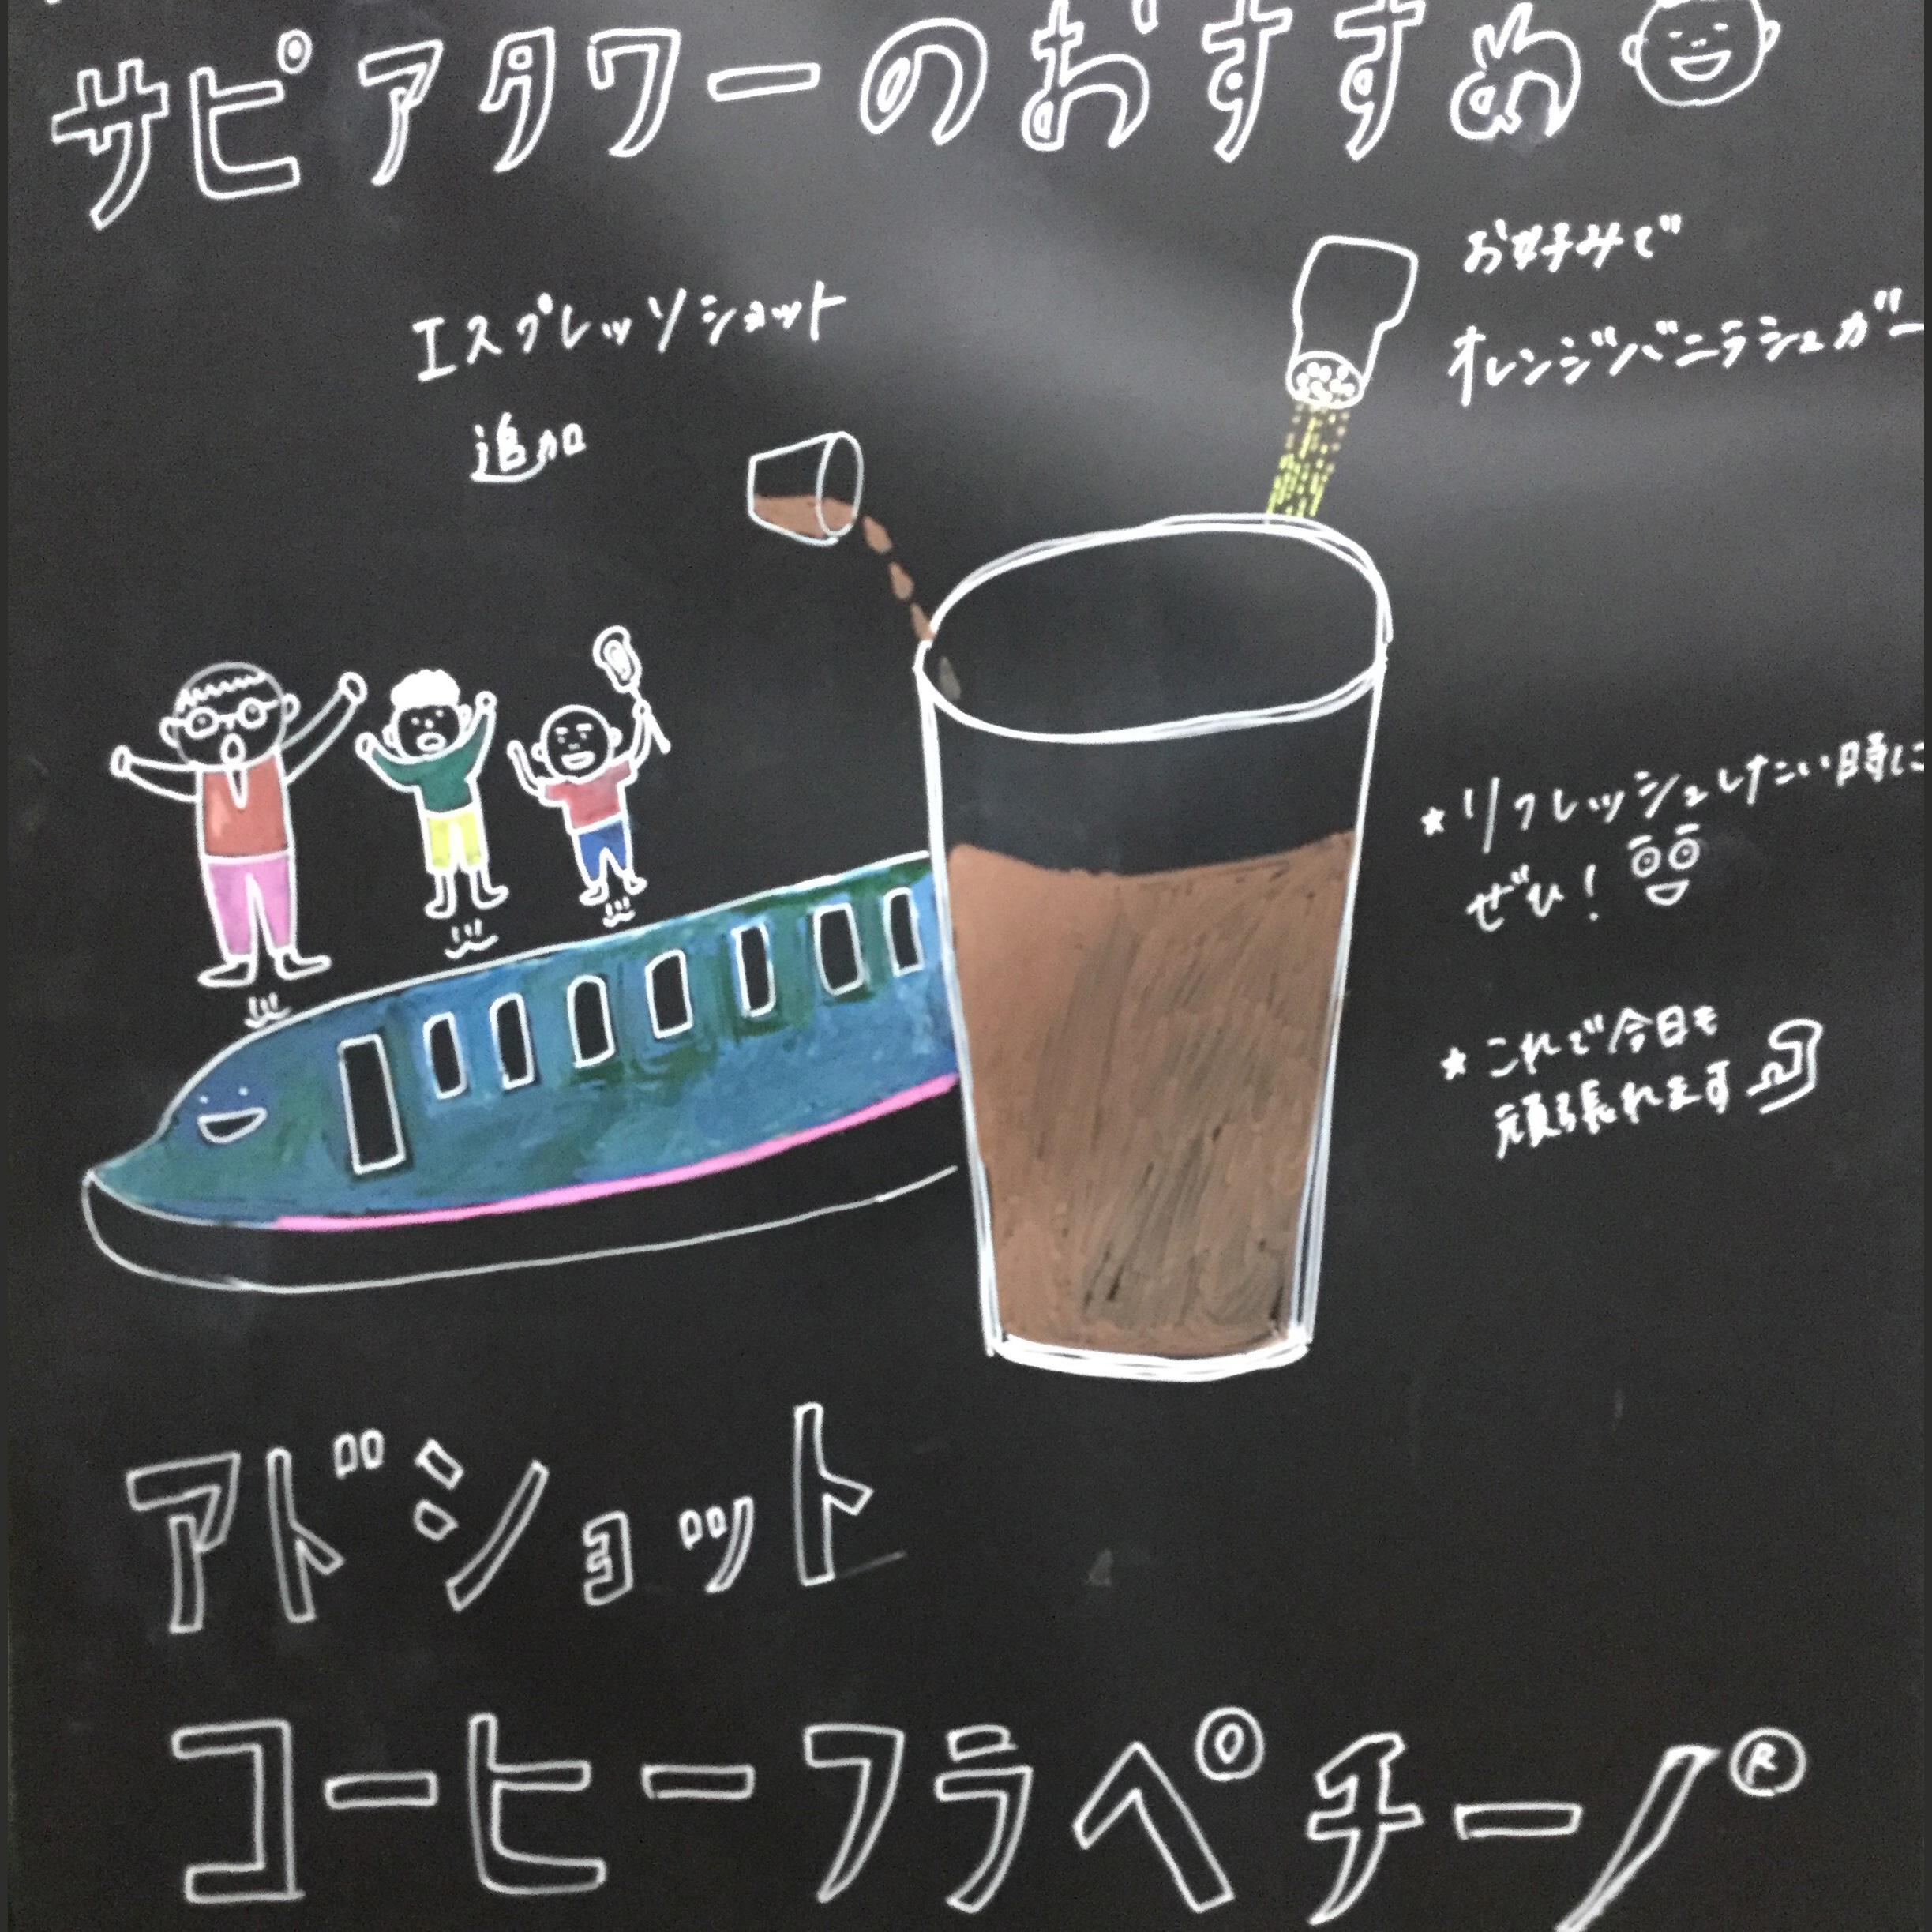 サピアタワーのおすすめ
お好みで
オレンジバニラシュガー
エスプレッソショット
追加
★リフレッシュしたい時に
ぜひ!
★これで今日も
頑張れます
アドショット
コーヒーフラペチーノ®